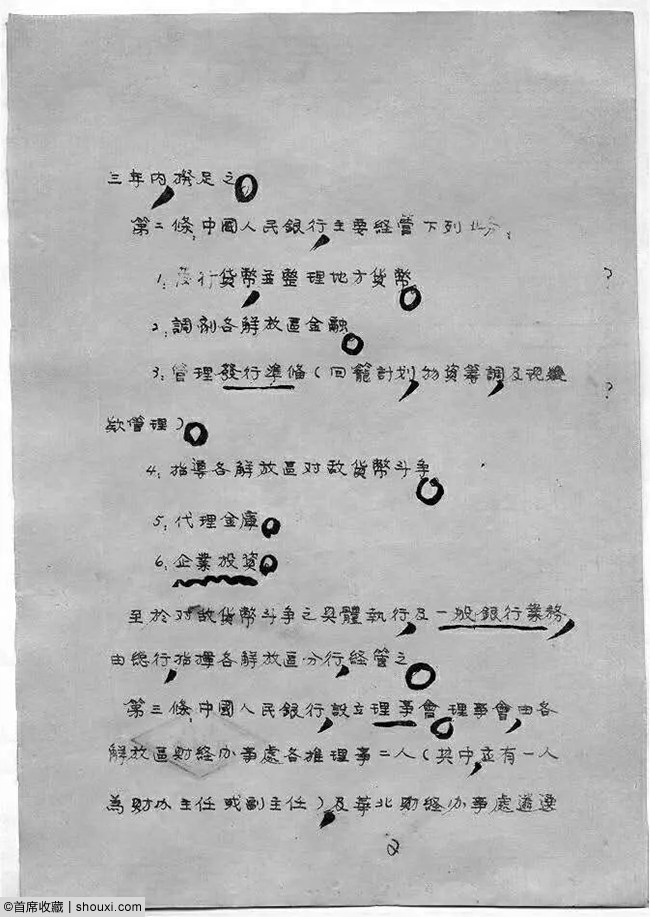 三年内撥足之。
第二條,中國人民銀行,主要経营下列业务:
1. 發行貨幣,並整理地方貨幣。 ?
2. 調剂各解放區金融。
3. 管理發行準備(回籠計划,物資筹調,及視 ?
欵管理)。
4. 指導各解放區对敌貨幣斗争。
5. 代理金庫。
6. 企業投資。
至於对敌貨幣斗争之具體執行,及一般銀行業務,
由總行,指揮各解放區分行,経管之。
第三條,中國人民銀行,設立理事會。理事會,由各
解放區財経办事處各推理事二人(其中,应有一人
為財办主任或副主任),及華北財経办事處遴選
2
©首席收藏 | shouxi.com